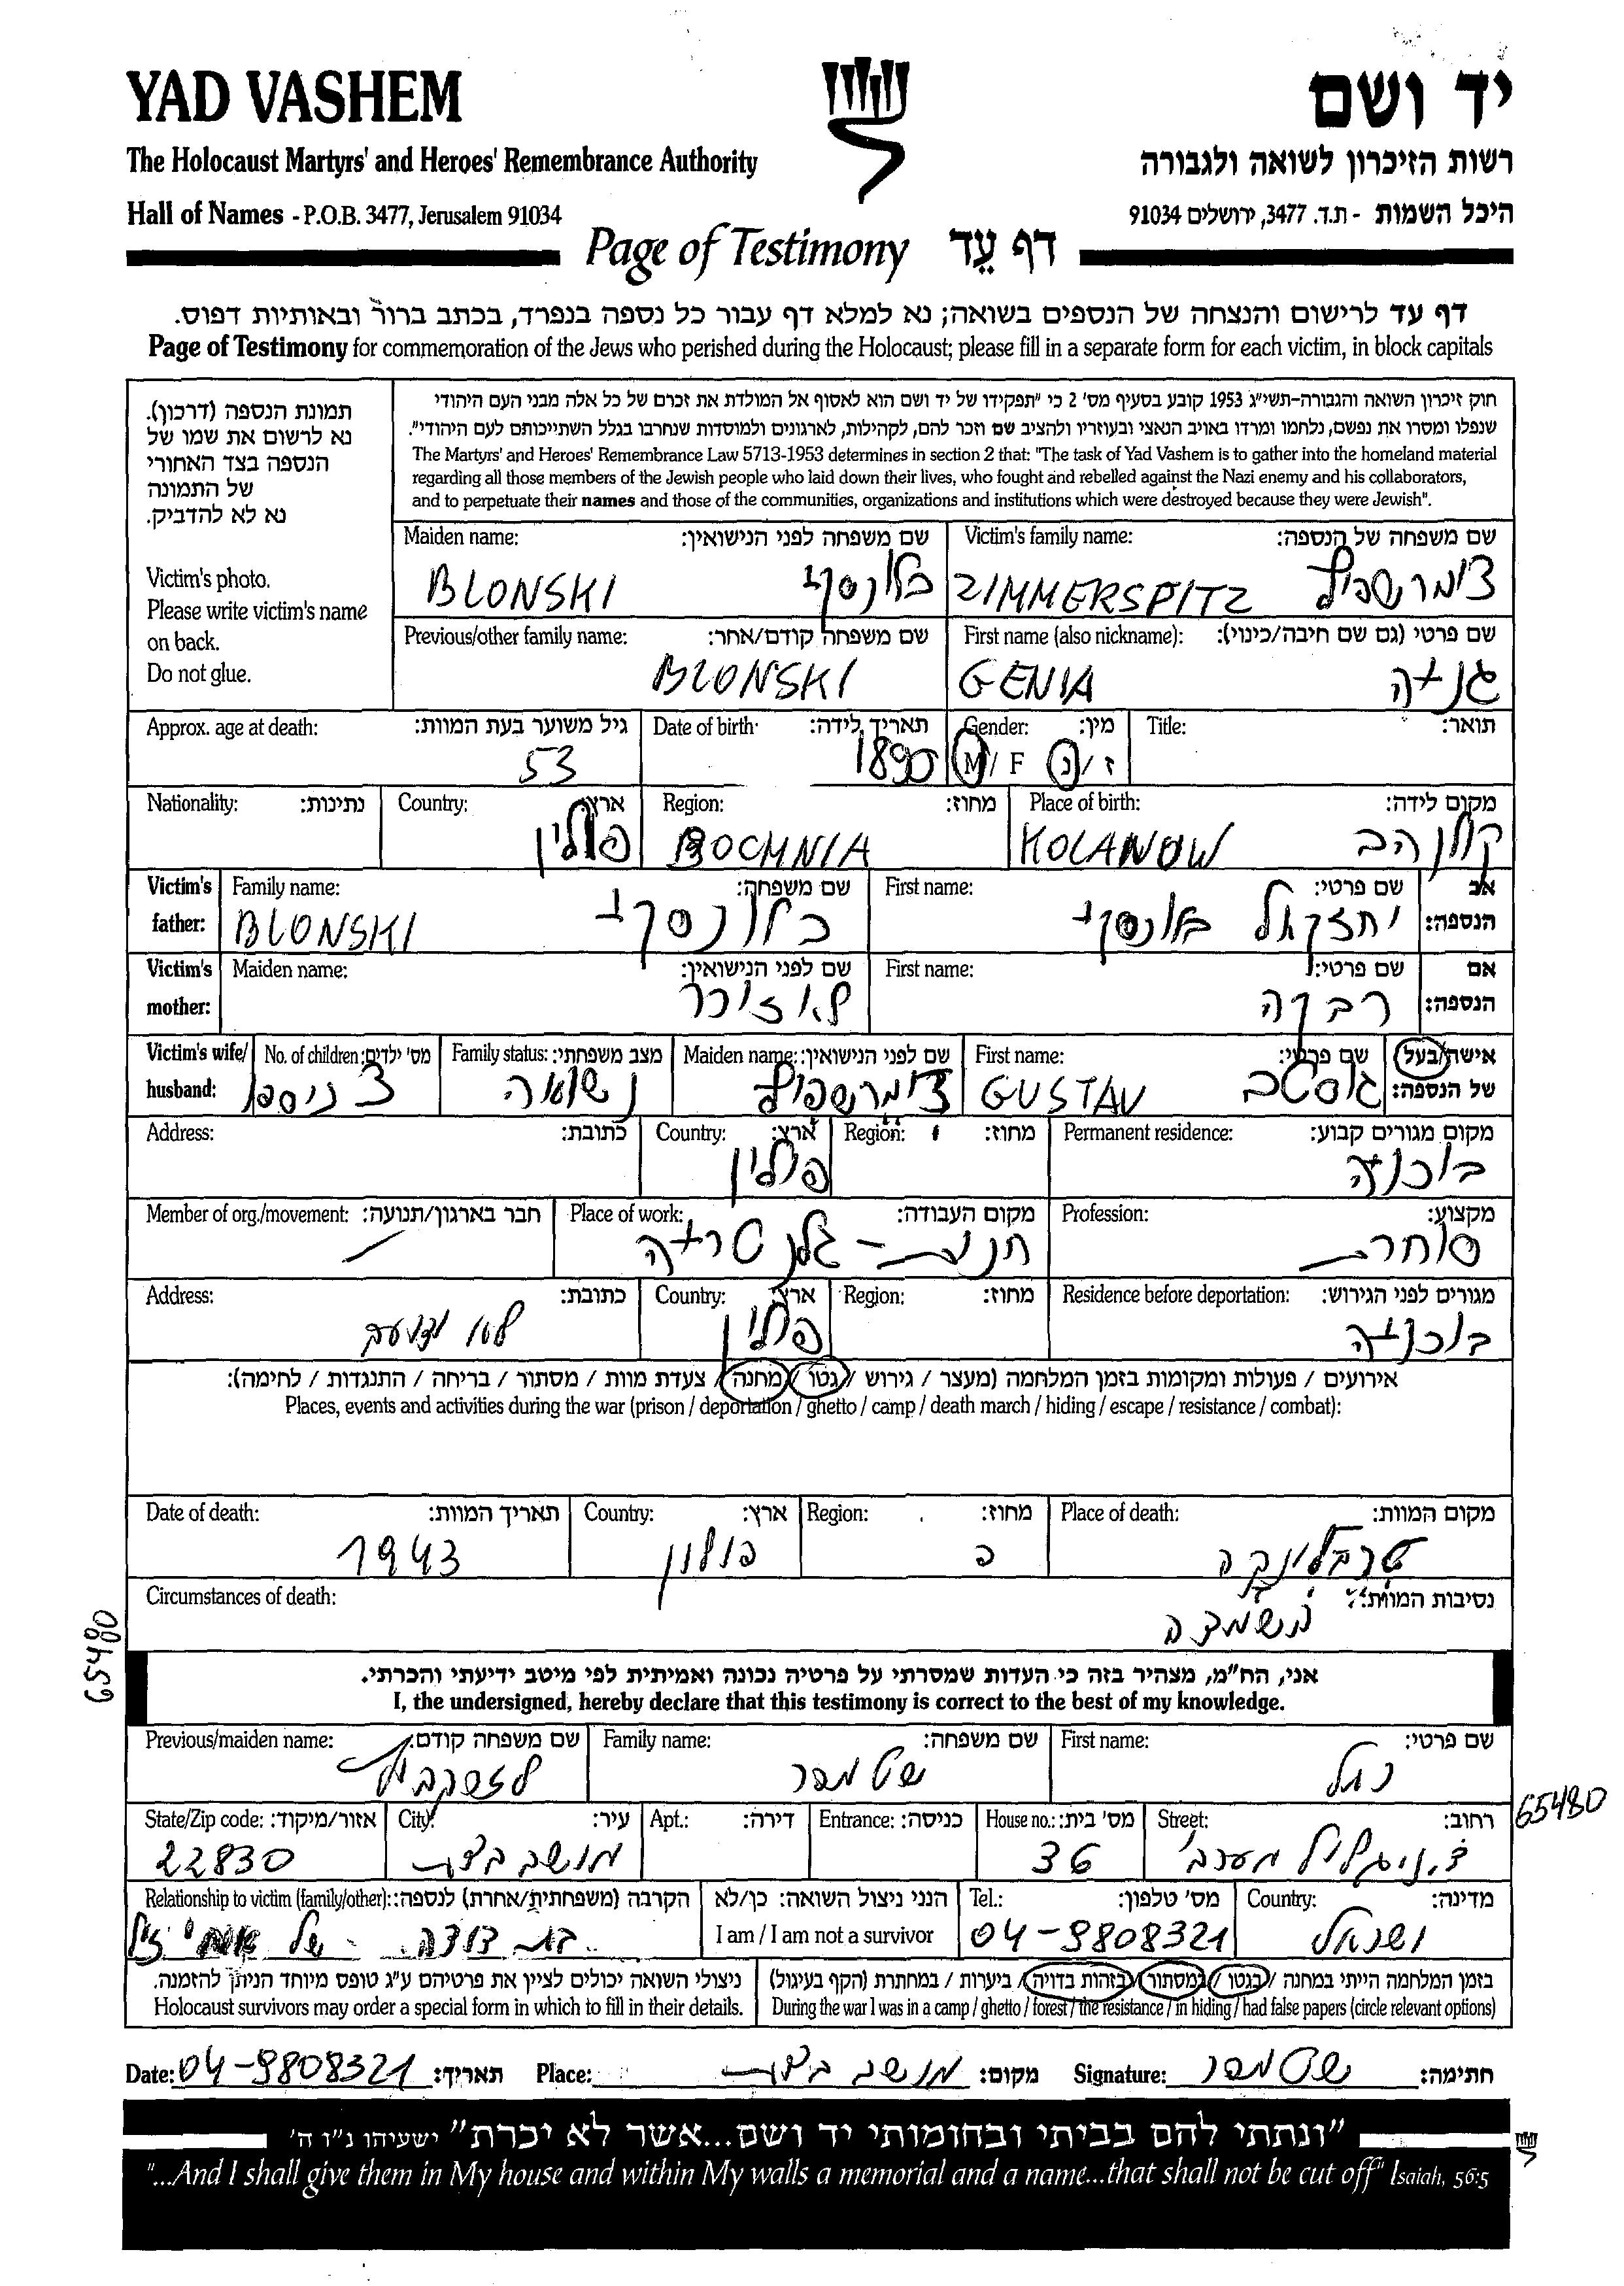 YAD VASHEM
יד ושם
The Holocaust Martyrs' and Heroes' Remembrance Authority
רשות הזיכרון לשואה ולגבורה
Hall of Names - P.O.B. 3477, Jerusalem 91034
היכל השמות - ת.ד. 3477, ירושלים 91034
Page of Testimony דף עֵד
דף עד לרישום והנצחה של הנספים בשואה; נא למלא דף עבור כל נספה בנפרד, בכתב ברור ובאותיות דפוס.
Page of Testimony for commemoration of the Jews who perished during the Holocaust; please fill in a separate form for each victim, in block capitals
תמונת הנספה (דרכון).
נא לרשום את שמו של
הנספה בצד האחורי
של התמונה
נא לא להדביק.
Victim's photo.
Please write victim's name
on back.
Do not glue.
חוק זיכרון השואה והגבורה-תשי"ג 1953 קובע בסעיף מס' 2 כי "תפקידו של יד ושם הוא לאסוף אל המולדת את זכרם של כל אלה מבני העם היהודי
שנפלו ומסרו את נפשם, נלחמו ומרדו באויב הנאצי ובעוזריו ולהציב שם וזכר להם, לקהילות, לארגונים ולמוסדות שנחרבו בגלל השתייכותם לעם היהודי".
The Martyrs' and Heroes' Remembrance Law 5713-1953 determines in section 2 that: "The task of Yad Vashem is to gather into the homeland material
regarding all those members of the Jewish people who laid down their lives, who fought and rebelled against the Nazi enemy and his collaborators,
and to perpetuate their names and those of the communities, organizations and institutions which were destroyed because they were Jewish".
Maiden name: שם משפחה לפני הנישואין:
BLONSKI בלונסקי
Victim's family name: שם משפחה של הנספה:
ZIMMERSPITZ צימרשפיץ
Previous/other family name: שם משפחה קודם/אחר:
BLONSKI
First name (also nickname): שם פרטי (גם שם חיבה/כינוי):
GENIA גניה
Approx. age at death: גיל משוער בעת המוות:
53
Date of birth: תאריך לידה:
1890
Gender: מין:
M / F ז / נ
Title: תואר:
Nationality: נתינות:
Country: ארץ:
פולין
Region: מחוז:
BOCMNIA
Place of birth: מקום לידה:
KOLANOW
Victim's father: אב הנספה:
Family name: שם משפחה:
BLONSKI בלונסקי
First name: שם פרטי:
יחזקאל בלונסקי
Victim's mother: אם הנספה:
Maiden name: שם לפני הנישואין:
First name: שם פרטי:
רבקה
Victim's wife/ husband: אישה/בעל של הנספה:
No. of children: מס' ילדים:
3 ניספו
Family status: מצב משפחתי:
נשואה
Maiden name: שם לפני הנישואין:
צימרשפיץ
First name: שם פרטי:
GUSTAV גוסטב
Address: כתובת:
Country: ארץ:
פולין
Region: מחוז:
Permanent residence: מקום מגורים קבוע:
בוכניה
Member of org./movement: חבר בארגון/תנועה:
Place of work: מקום העבודה:
חנות - גלנטריה
Profession: מקצוע:
סוחרת
Address: כתובת:
לא ידוע
Country: ארץ:
פולין
Region: מחוז:
Residence before deportation: מגורים לפני הגירוש:
בוכניה
אירועים / פעולות ומקומות בזמן המלחמה (מעצר / גירוש / גטו / מחנה / צעדת מוות / מסתור / בריחה / התנגדות / לחימה):
Places, events and activities during the war (prison / deportation / ghetto / camp / death march / hiding / escape / resistance / combat):
Date of death: תאריך המוות:
1943
Country: ארץ:
פולין
Region: מחוז:
Place of death: מקום המוות:
טרבלינקה
Circumstances of death: נסיבות המוות:
הושמדה
65480
אני, הח"מ, מצהיר בזה כי העדות שמסרתי על פרטיה נכונה ואמיתית לפי מיטב ידיעתי והכרתי.
I, the undersigned, hereby declare that this testimony is correct to the best of my knowledge.
Previous/maiden name: שם משפחה קודם:
Family name: שם משפחה:
שטמפר
First name: שם פרטי:
רחל
65480
State/Zip code: אזור/מיקוד:
22830
City: עיר:
מושב בצת
Apt.: דירה:
Entrance: כניסה:
House no.: מס' בית:
36
Street: רחוב:
ד.נ. גליל מערבי
Relationship to victim (family/other): הקרבה (משפחתית/אחרת) לנספה:
בת דודה של
הנני ניצול השואה: כן/לא
I am / I am not a survivor
Tel.: מס' טלפון:
04-9808321
Country: מדינה:
ישראל
ניצולי השואה יכולים לציין את פרטיהם ע"ג טופס מיוחד הניתן להזמנה.
Holocaust survivors may order a special form in which to fill in their details.
בזמן המלחמה הייתי במחנה / בגטו / במסתור / בזהות בדויה / ביערות / במחתרת (הקף בעיגול)
During the war I was in a camp / ghetto / forest / the resistance / in hiding / had false papers (circle relevant options)
Date: 04-9808321 תאריך: Place: מושב בצת מקום: Signature: שטמפר חתימה:
"ונתתי להם בביתי ובחומותי יד ושם...אשר לא יכרת" ישעיהו נ"ו ה'
"...And I shall give them in My house and within My walls a memorial and a name...that shall not be cut off" Isaiah, 56:5